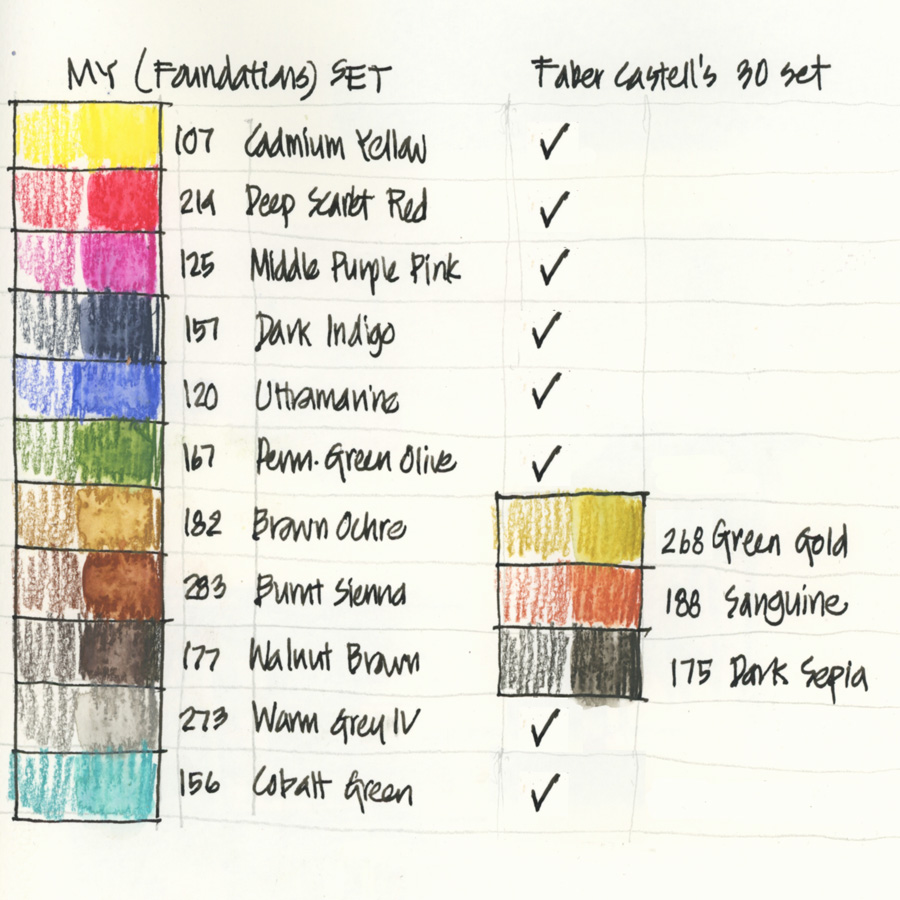 MY (Foundations) SET Faber Castell's 30 set
107 Cadmium Yellow ✓
219 Deep Scarlet Red ✓
125 Middle Purple Pink ✓
157 Dark Indigo ✓
120 Ultramarine ✓
167 Perm. Green Olive ✓
182 Brown Ochre 268 Green Gold
283 Burnt Sienna 188 Sanguine
177 Walnut Brown 175 Dark Sepia
273 Warm Grey IV ✓
156 Cobalt Green ✓